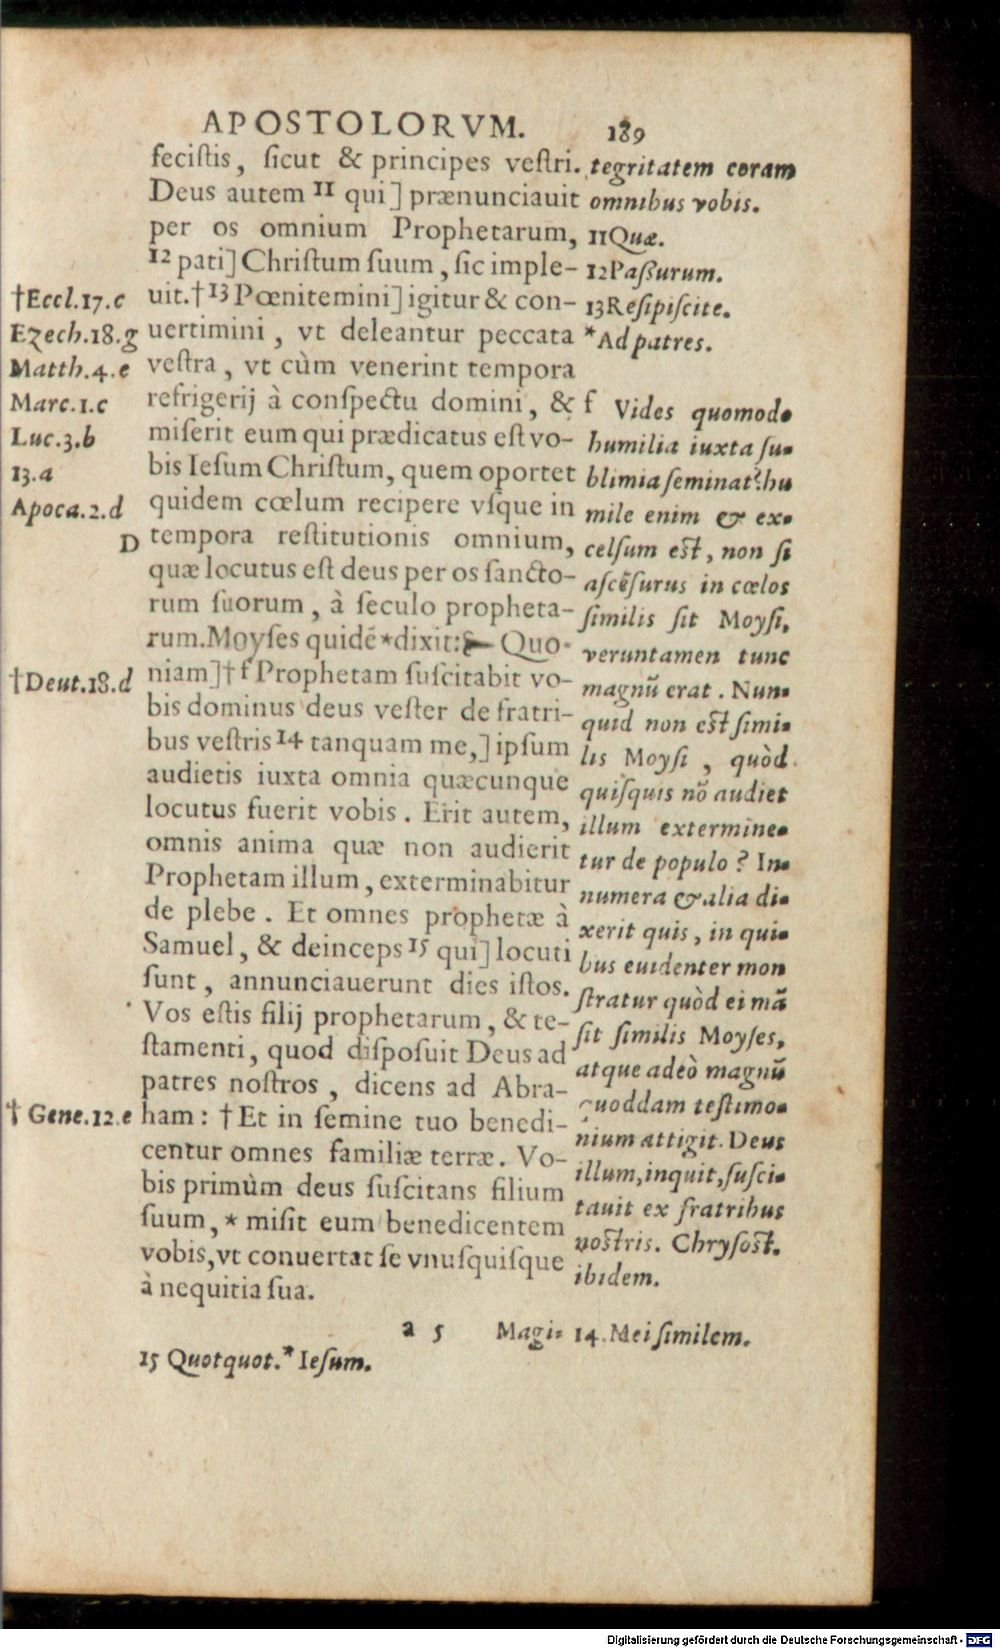 APOSTOLORVM. 189
feciſtis, ſicut & principes veſtri.
Deus autem 11 qui] prænunciauit
per os omnium Prophetarum,
12 pati] Chriſtum ſuum, ſic imple-
uit.† 13 Pœnitemini] igitur & con-
uertimini, vt deleantur peccata
veſtra, vt cùm venerint tempora
refrigerij à conſpectu domini, &
miſerit eum qui prædicatus eſt vo-
bis Ieſum Chriſtum, quem oportet
quidem cœlum recipere vſque in
D tempora reſtitutionis omnium,
quæ locutus eſt deus per os ſancto-
rum ſuorum, à ſeculo propheta-
rum. Moyſes quidē *dixit: Quo-
niam] † f Prophetam ſuſcitabit vo-
bis dominus deus veſter de fratri-
bus veſtris 14 tanquam me,] ipſum
audietis iuxta omnia quæcunque
locutus fuerit vobis. Erit autem,
omnis anima quæ non audierit
Prophetam illum, exterminabitur
de plebe. Et omnes prophetæ à
Samuel, & deinceps 15 qui] locuti
ſunt, annunciauerunt dies iſtos.
Vos eſtis filij prophetarum, & te-
ſtamenti, quod diſpoſuit Deus ad
patres noſtros, dicens ad Abra-
ham: † Et in ſemine tuo benedi-
centur omnes familiæ terræ. Vo-
bis primùm deus ſuſcitans filium
ſuum, * miſit eum benedicentem
vobis, vt conuertat ſe vnuſquiſque
à nequitia ſua.
†Eccl.17.c
Ezech.18.g
Matth.4.e
Marc.1.c
Luc.3.b
13.a
Apoca.2.d
†Deut.18.d
† Gene.12.e
tegritatem coram
omnibus vobis.
11 Quæ.
12 Paſſurum.
13 Reſipiſcite.
*Ad patres.
f Vides quomodo
humilia iuxta ſu-
blimia ſeminat? hu
mile enim & ex-
celſum eſt, non ſi
aſcēſurus in cœlos
ſimilis ſit Moyſi,
veruntamen tunc
magnū erat. Nun-
quid non eſt ſimi-
lis Moyſi, quòd
quiſquis nō audiet
illum extermine-
tur de populo? In-
numera & alia di-
xerit quis, in qui-
bus euidenter mon
ſtratur quòd ei mā
ſit ſimilis Moyſes,
atque adeò magnū
quoddam teſtimo-
nium attigit. Deus
illum, inquit, ſuſci-
tauit ex fratribus
noſtris. Chryſoſt.
ibidem.
a 5 Magi- 14. Mei ſimilem.
15 Quotquot. * Ieſum.
Digitalisierung gefördert durch die Deutsche Forschungsgemeinschaft - DFG